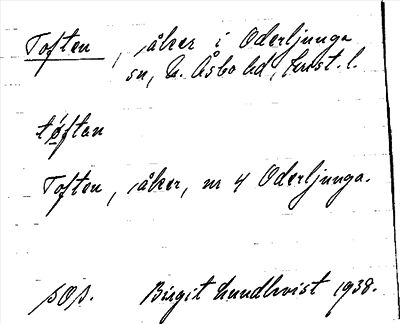 Toften, åker i Oderljunga
sn, N. Åsbo hd, Krist. l.
tøftan
Toften, åker, nr 4 Oderljunga.
SOS. Birgit Lundkvist 1938.